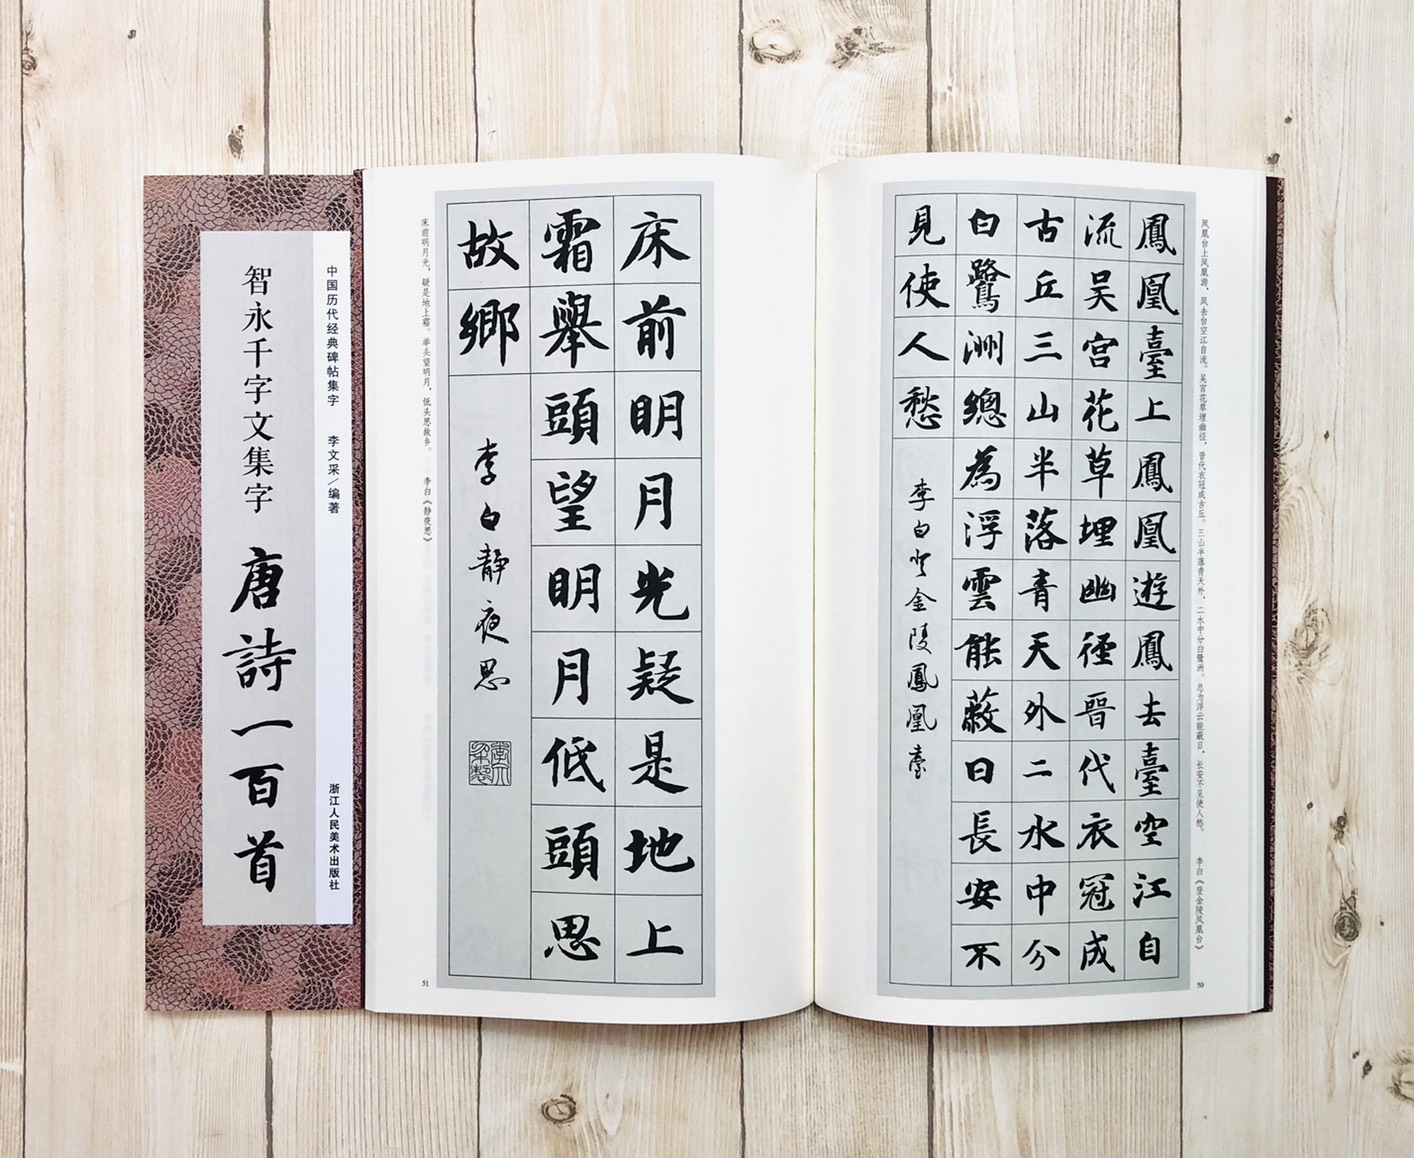 凤凰台上凤凰游，凤去台空江自流。吴宫花草埋幽径，晋代衣冠成古丘。三山半落青天外，二水中分白鹭洲。总为浮云能蔽日，长安不见使人愁。　李白《登金陵凤凰台》
50
鳳凰臺上鳳凰遊鳳去臺空江自
流吴宫花草埋幽徑晉代衣冠成
古丘三山半落青天外二水中分
白鷺洲總為浮雲能蔽日長安不
見使人愁
李白登金陵鳳凰臺
床前明月光疑是地上
霜舉頭望明月低頭思
故鄉
李白静夜思
床前明月光，疑是地上霜。举头望明月，低头思故乡。　李白《静夜思》
51
中国历代经典碑帖集字　李文采／编著　浙江人民美术出版社
智永千字文集字 唐詩一百首